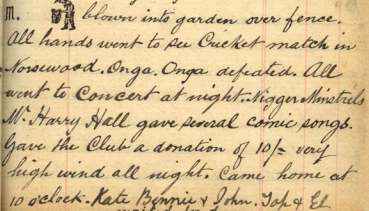 m. blown into garden over fence.
All hands went to see Cricket match in
Norsewood. Onga Onga defeated. All
went to Concert at night. Nigger Minstrels
Mr. Harry Hall gave several comic songs.
Gave the Club a donation of 10/= very
high wind all night. Came home at
10 o'clock. Kate Bennie & John. Top & El